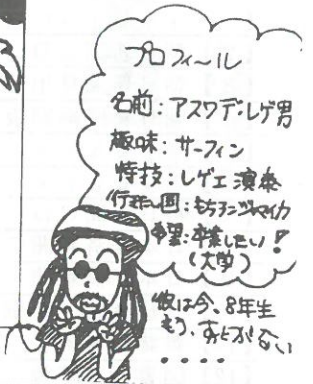 プロフィ〜ル
名前:アスワデ・レゲ男
趣味:サーフィン
特技:レゲエ演奏
行きたい国:もちろンジャマイカ
希望:卒業したい!
(大学)
彼は今、8年生
もう、あとがない
・・・・